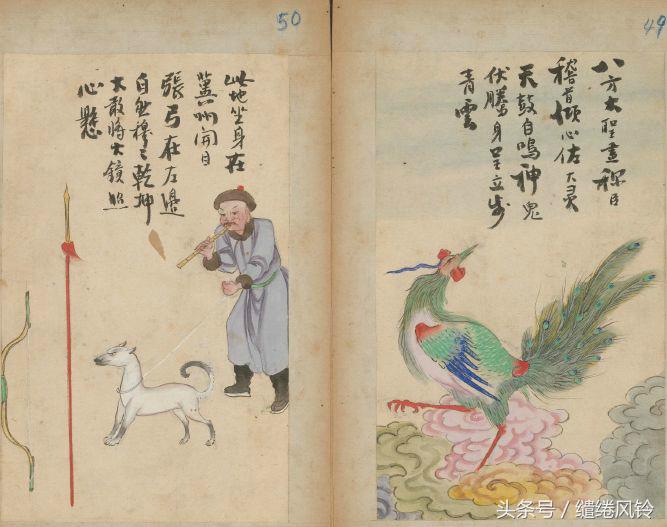 49
八方大聖盡稱臣
稽首傾心佐大灵
天鼓自鳴神鬼
伏騰身呈立步
青雲
50
此地坐身在
冀州開目
張弓在左邊
自然穆之乾坤
大敢將大鏡照
心懸
头条号 / 缱绻风铃